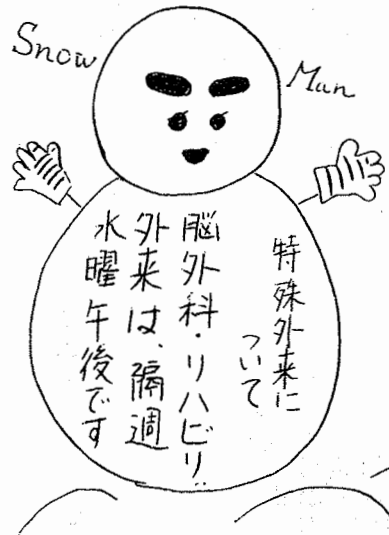 Snow Man
特殊外来に
ついて
脳外科・リハビリ
外来は、隔週
水曜午後です